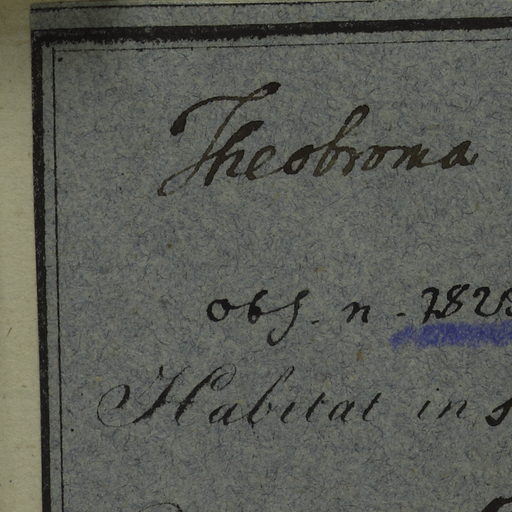 Theobroma
obs. n. 2828
Habitat in